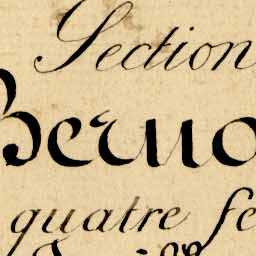 Section
Berno
quatre fe